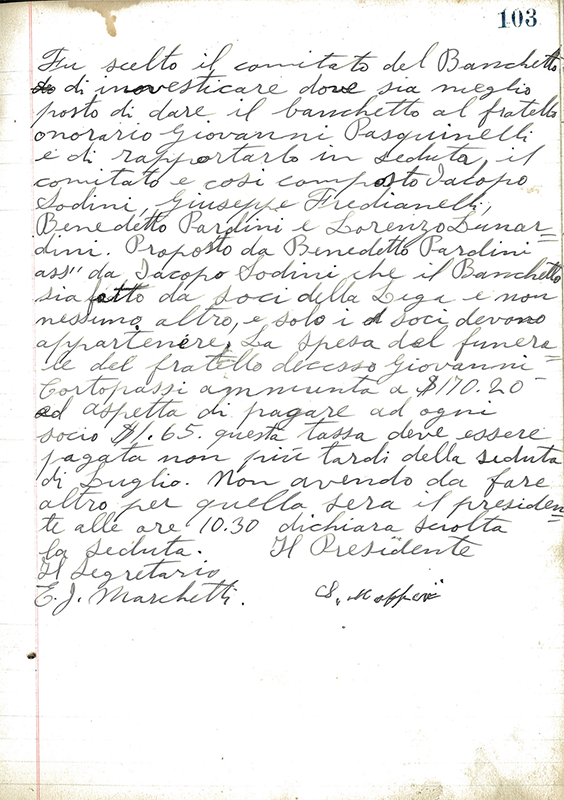 103
Fu scelto il comitato del Banchetto
do di investicare dove sia meglio
posto di dare il banchetto al fratello
onorario Giovanni Pasquinelli
e di rapportarlo in seduta, il
comitato e cosi composto Iacopo
Sodini, Giuseppe Fredianelli,
Benedetto Pardini e Lorenzo Lunar=
dini. Proposto da Benedetto Pardini
ass" da Iacopo Sodini che il Banchetto
sia fatto da soci della Lega e non
nessuno altro, e solo i soci devono
appartenere. La spesa del funera=
le del fratello decesso Giovanni
Cortopassi ammunta a $170.20
ed aspetta di pagare ad ogni
socio $1.65. questa tassa deve essere
pagata non più tardi della seduta
di Luglio. Non avendo da fare
altro per quella sera il presiden=
te alle ore 10.30 dichiara sciolta
la seduta. Il Presidente
Il Segretario
E. J. Marchetti.